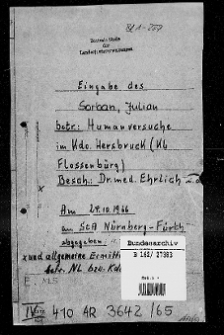 Zentrale Stelle
der
Landesjustizverwaltungen
Eingabe des
Sorban, Julian
betr.: Humanversuche
im Kdo. Hersbruck (KL
Flossenbürg)
Besch.: Dr. med. Ehrlich
Am 24.10.1966
an StA Nürnberg-Fürth
abgegeben
Bundesarchiv
B 162/ 27383
und allgemeine
betr. NL bzw. Kdo
IV 410 AR 3642/65